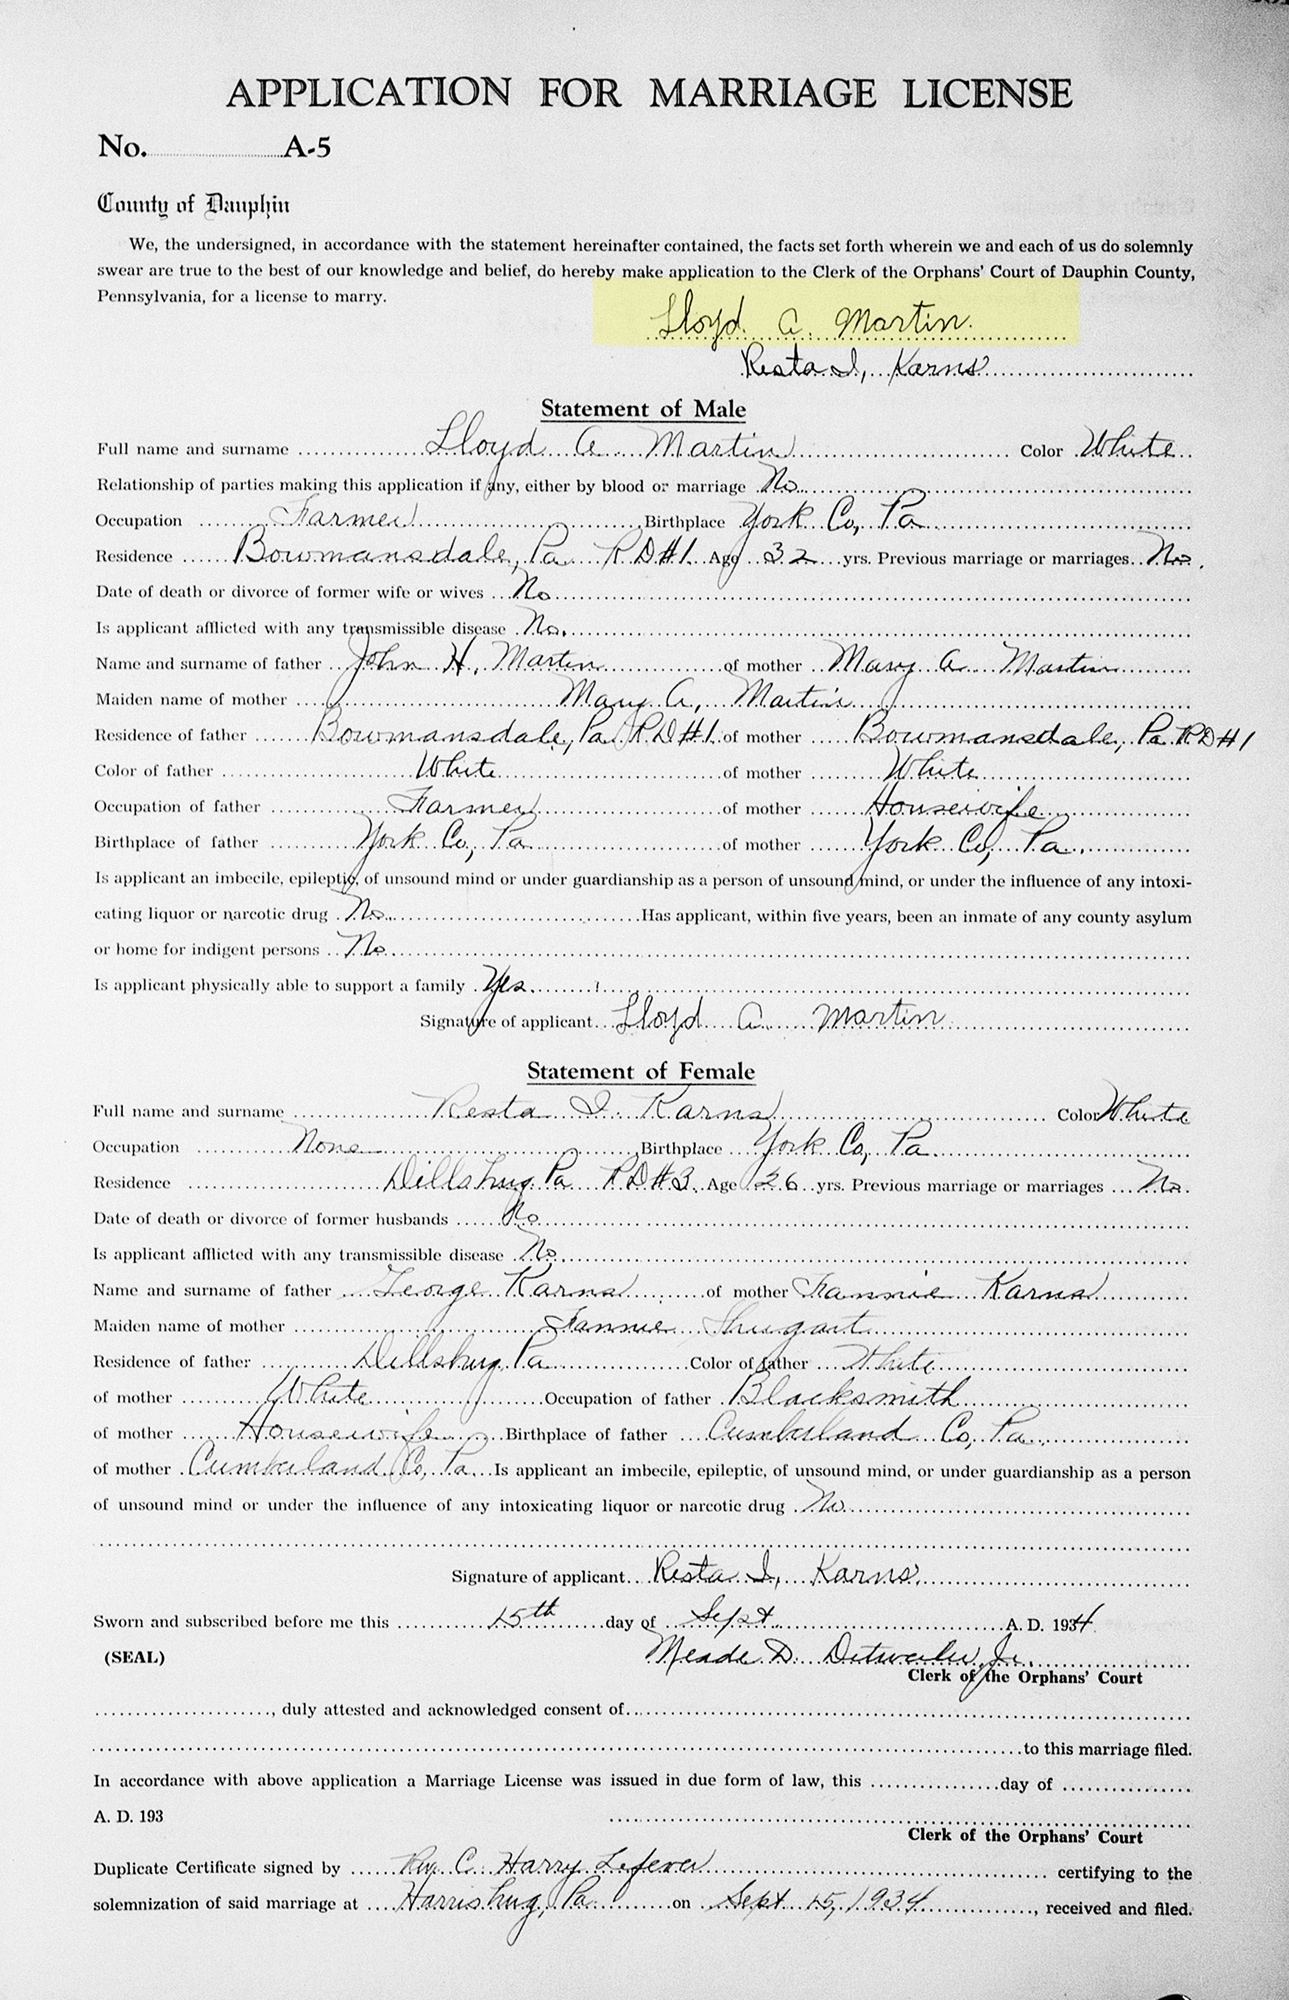 APPLICATION FOR MARRIAGE LICENSE
No. A-5
County of Dauphin
We, the undersigned, in accordance with the statement hereinafter contained, the facts set forth wherein we and each of us do solemnly
swear are true to the best of our knowledge and belief, do hereby make application to the Clerk of the Orphans' Court of Dauphin County,
Pennsylvania, for a license to marry.
Lloyd A. Martin
Resta I, Karns
Statement of Male
Full name and surname Lloyd A. Martin Color White
Relationship of parties making this application if any, either by blood or marriage No
Occupation Farmer Birthplace York Co, Pa
Residence Bowmansdale, Pa RD#1 Age 32 yrs. Previous marriage or marriages No.
Date of death or divorce of former wife or wives No
Is applicant afflicted with any transmissible disease No.
Name and surname of father John H. Martin of mother Mary A Martin
Maiden name of mother Mary A, Martin
Residence of father Bowmansdale, Pa RD#1 of mother Bowmansdale, Pa RD#1
Color of father White of mother White
Occupation of father Farmer of mother Housewife
Birthplace of father York Co, Pa of mother York Co, Pa.
Is applicant an imbecile, epileptic, of unsound mind or under guardianship as a person of unsound mind, or under the influence of any intoxi-
cating liquor or narcotic drug No Has applicant, within five years, been an inmate of any county asylum
or home for indigent persons No
Is applicant physically able to support a family Yes.
Signature of applicant Lloyd A. Martin
Statement of Female
Full name and surname Resta I. Karns Color White
Occupation None Birthplace York Co, Pa
Residence Dillsburg Pa RD#3 Age 26 yrs. Previous marriage or marriages No.
Date of death or divorce of former husbands No
Is applicant afflicted with any transmissible disease No
Name and surname of father George Karns of mother Fannie Karns
Maiden name of mother Fannie Shugart
Residence of father Dillsburg Pa Color of father White
of mother White Occupation of father Blacksmith
of mother Housewife Birthplace of father Cumberland Co, Pa.
of mother Cumberland Co, Pa Is applicant an imbecile, epileptic, of unsound mind, or under guardianship as a person
of unsound mind or under the influence of any intoxicating liquor or narcotic drug No
Signature of applicant Resta I, Karns
Sworn and subscribed before me this 15th day of Sept A. D. 1934
(SEAL) Meade D. Detweiler, Jr.
Clerk of the Orphans' Court
, duly attested and acknowledged consent of
to this marriage filed.
In accordance with above application a Marriage License was issued in due form of law, this day of
A. D. 193
Clerk of the Orphans' Court
Duplicate Certificate signed by Rev. C. Harry Lefever certifying to the
solemnization of said marriage at Harrisburg, Pa on Sept 15, 1934, received and filed.